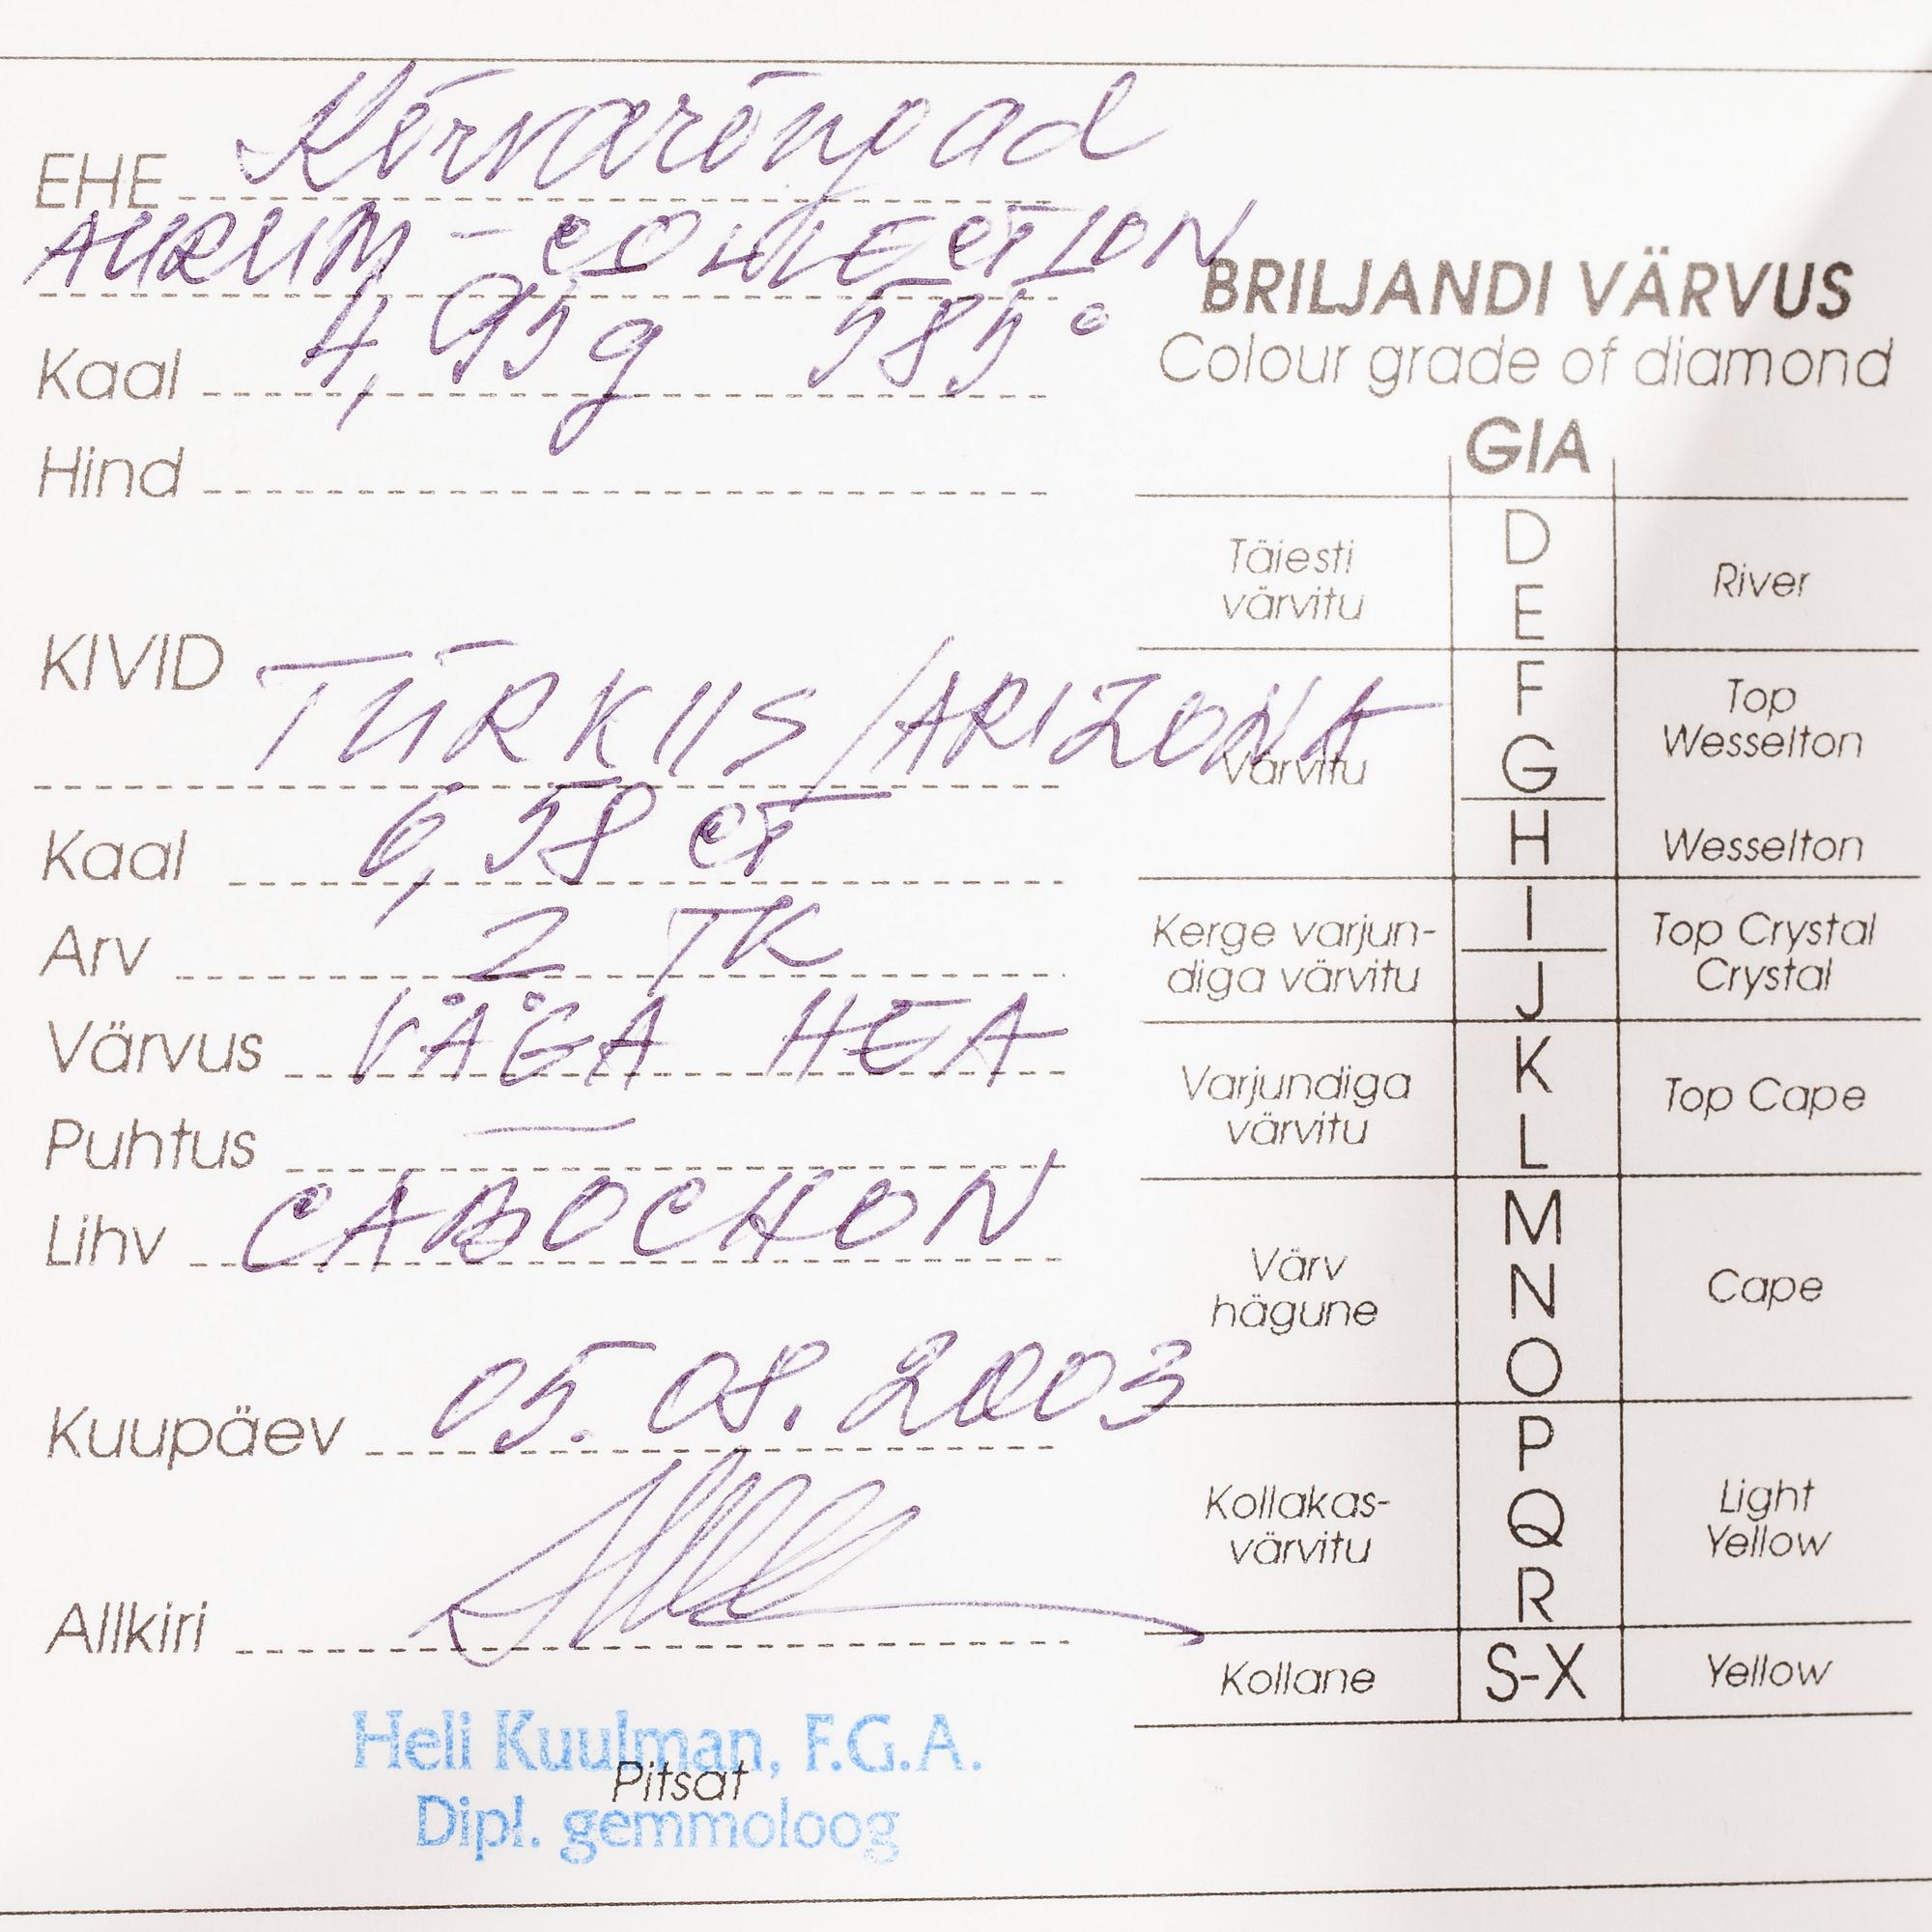 EHE Kõrvarõngad
AURUM - COLLECTION
Kaal 4,95g 585°
Hind
KIVID TÜRKIIS/ARIZONA
Kaal 6,58 CT
Arv 2 TK
Värvus VÄGA HEA
Puhtus —
Lihv CABOCHON
Kuupäev 05.08.2003
Allkiri
Heli Kuulman, F.G.A.
Pitsat
Dipl. gemmoloog
BRILJANDI VÄRVUS
Colour grade of diamond
GIA
Täiesti värvitu D E River
Värvitu F G Top Wesselton
H Wesselton
Kerge varjun-
diga värvitu
I Top Crystal
J Crystal
Varjundiga värvitu K L Top Cape
Värv hägune M N O Cape
Kollakas-
värvitu
P Q R Light Yellow
Kollane S-X Yellow